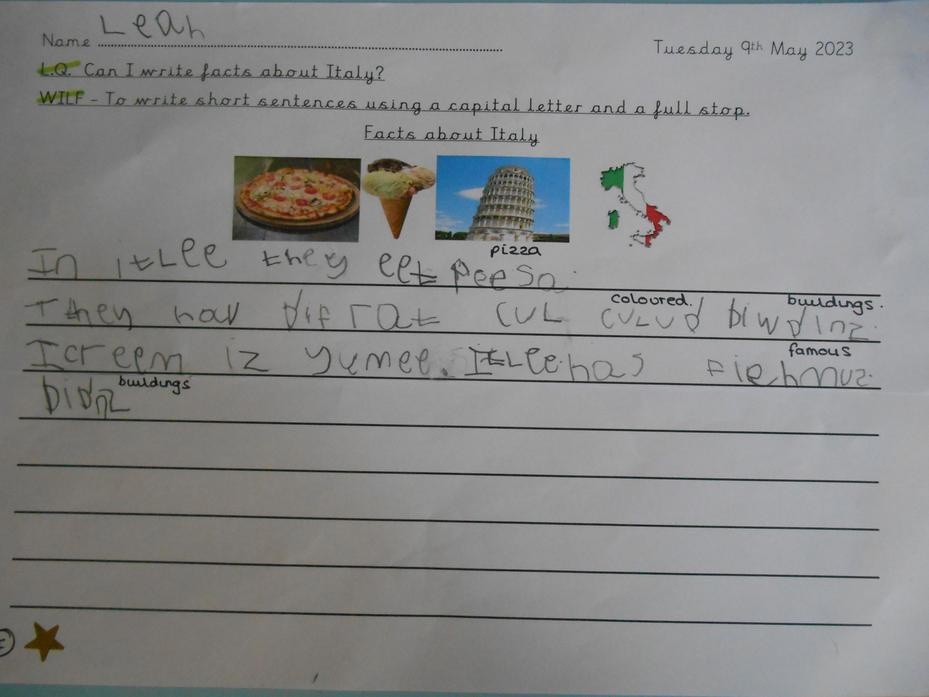 Name Leah
Tuesday 9th May 2023
L.Q. Can I write facts about Italy?
WILF - To write short sentences using a capital letter and a full stop.
Facts about Italy
pizza
In itLee they eet peesa.
coloured. buildings.
They hav difrat cuL culud biwdinz.
famous
Icreem iz yumee. ItLee has fiehmuz.
buildings
bidnz